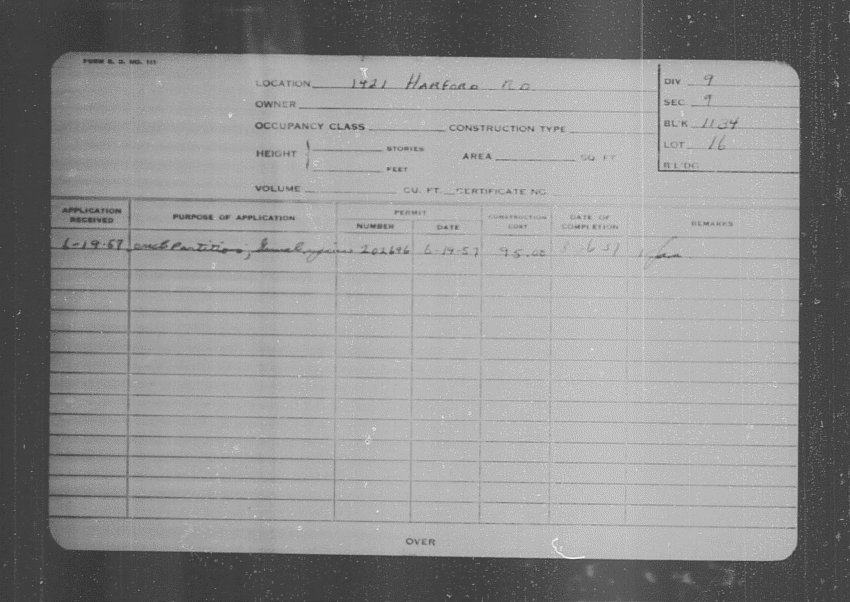 FORM B. D. NO. 111
LOCATION 1421 HARFORD RD.
DIV 9
OWNER
SEC 9
OCCUPANCY CLASS CONSTRUCTION TYPE
BL'K 1134
HEIGHT STORIES
FEET
AREA SQ. FT.
LOT 16
B'L'DG
VOLUME CU. FT. CERTIFICATE NO.
APPLICATION RECEIVED PURPOSE OF APPLICATION PERMIT NUMBER DATE CONSTRUCTION COST DATE OF COMPLETION REMARKS
6-19-57 erect Partitions; General 202696 6-19-57 95.00
OVER